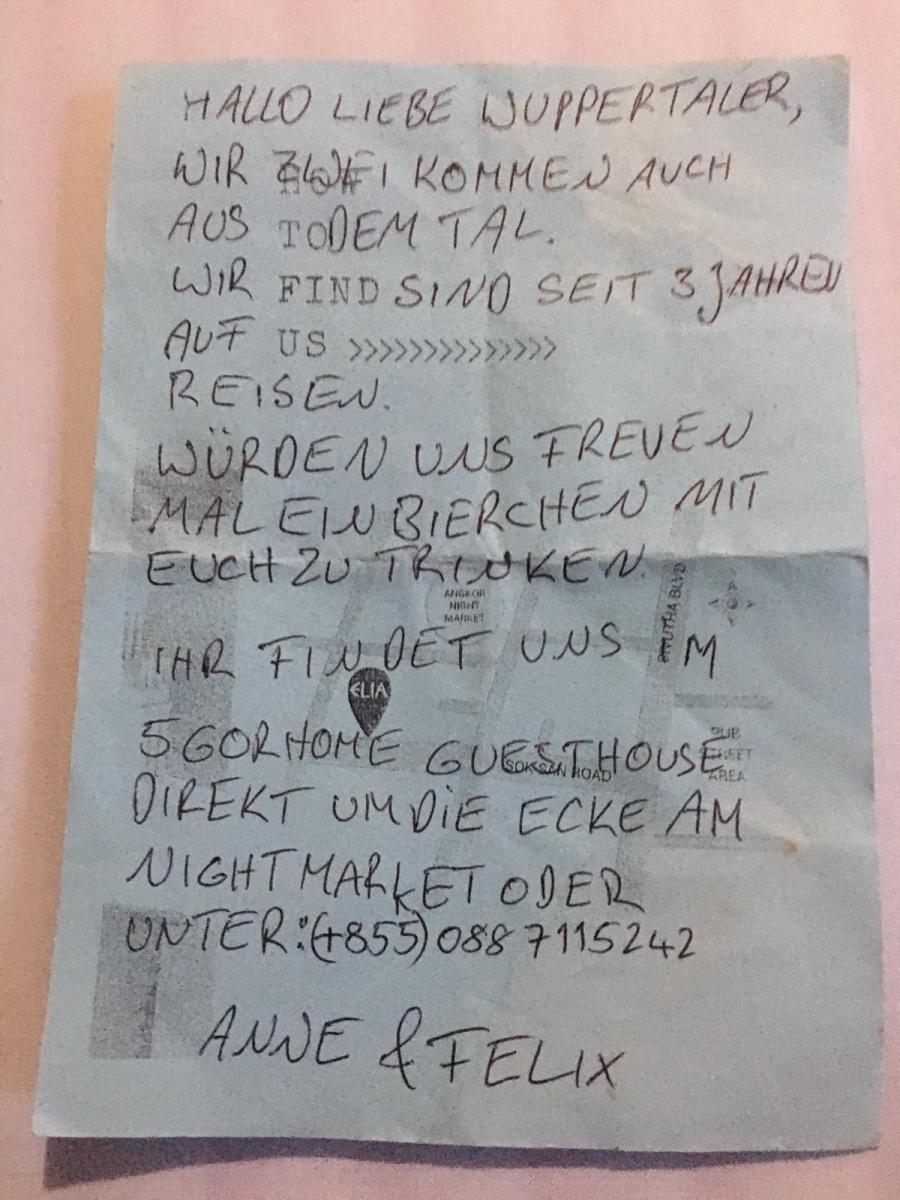 HALLO LIEBE WUPPERTALER,
WIR ZWEI KOMMEN AUCH
AUS TO DEM TAL.
WIR FIND SIND SEIT 3 JAHREN
AUF US >>>>>>>>>>>>>>
REISEN.
WÜRDEN UNS FREUEN
MAL EIN BIERCHEN MIT
EUCH ZU TRINKEN.
ANGKOR
NIGHT
MARKET
BLVD
IHR FINDET UNS IM
ELIA
5GORHOME GUESTHOUSE
SOK SAN ROAD
PUB
STREET
AREA
DIREKT UM DIE ECKE AM
NIGHTMARKET ODER
UNTER:(+855) 088 7115242
ANNE & FELIX